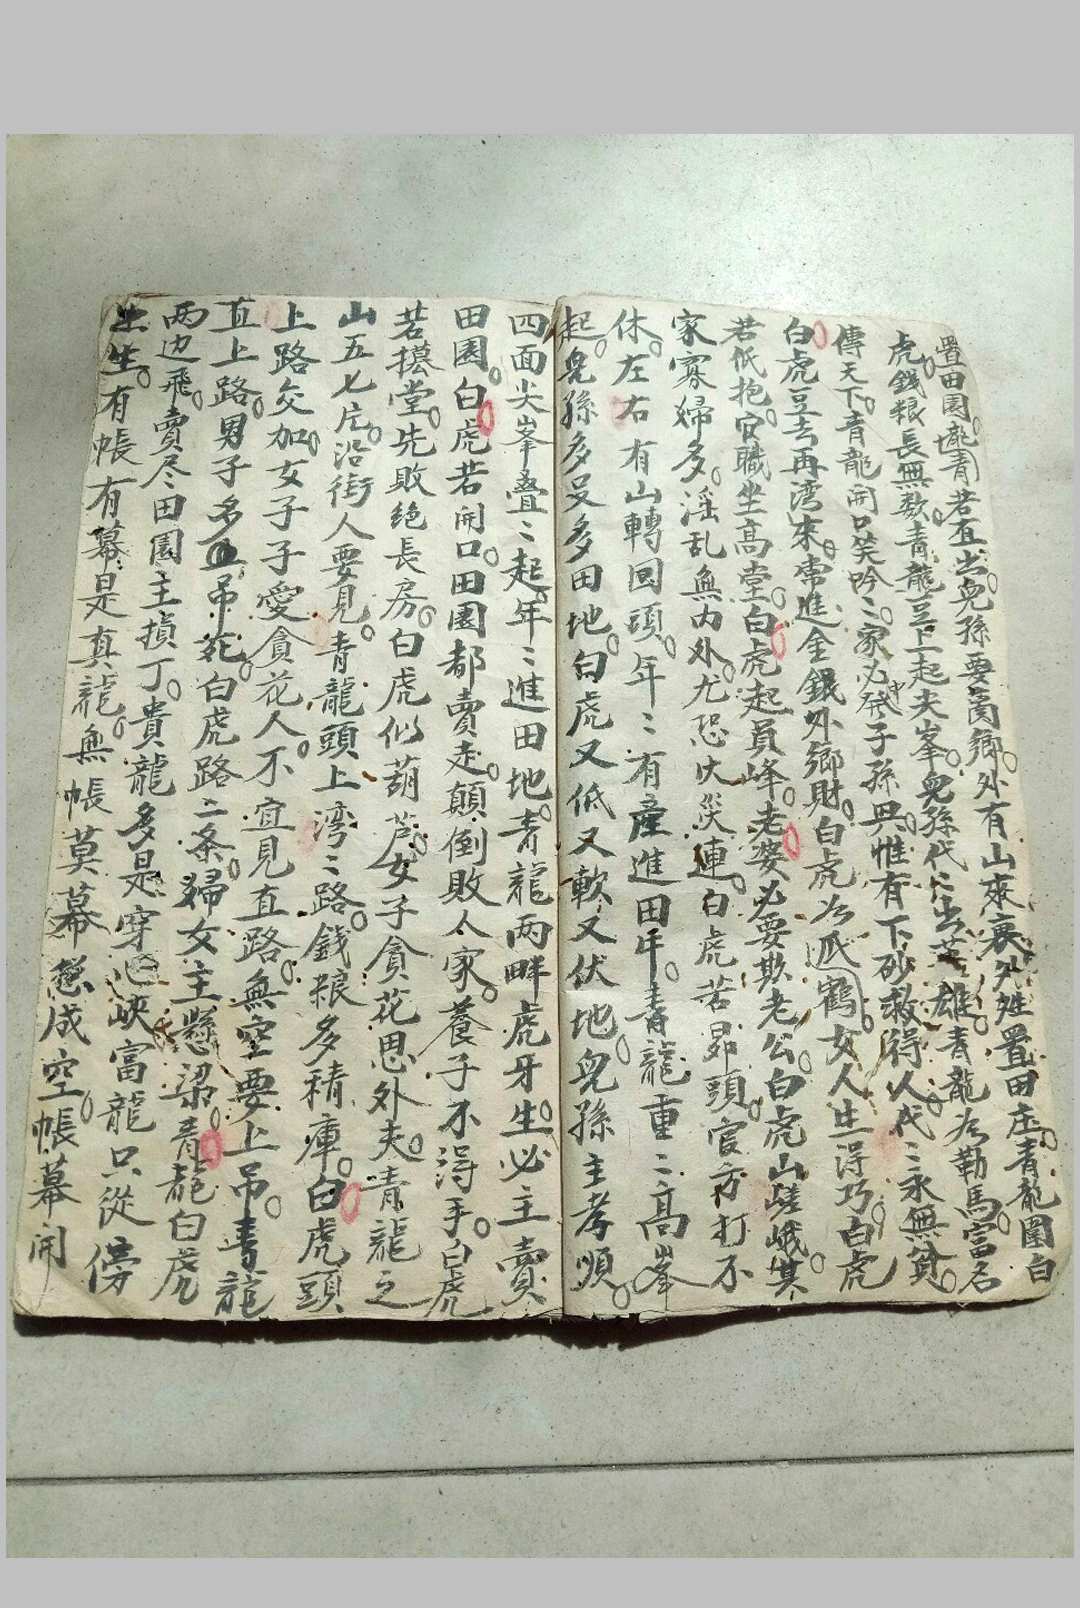 置田園。龍青若直出。兒孫要商鄉。外有山來裹外姓置田庄。青龍圍白
虎。錢粮長無数。青龍豈上起夫峯。兒孫代〻出英雄。青龍為勒馬。富名
傳天下。青龍開口笑吟〻。家必發中子孫興。惟有下砂救得人。代〻永無貧。
白虎豈去再湾來。常進金銀外鄉財。白虎必派鶴。女人生得巧。白虎
若低抱。官職坐高堂。白虎起員峰。老婆必要欺老公。白虎山嵯峨。其
家寡婦多。淫乱無内外。尤恐火災連。白虎若昂頭。官方打不
休。左右有山轉回頭。年〻有産進田牛。青龍重〻高峯
起。兒孫多又多田地。白虎又低又軟又伏地。兒孫主孝順。
四面尖峯叠〻起。年〻進田地。青龍两畔虎牙生。必主賣
田園。白虎若開口。田園都賣走。顛倒敗人家。養子不得手。白虎
若搥堂。先敗絶長房。白虎似葫芦。女子貪花思外夫。青龍之
山五七片。沿街人要見。青龍頭上湾〻路。錢粮多積庫。白虎頭
上路交加。女子子愛貪花人。不宜見直路。無空要上吊。青龍
直上路。男子多吊死。白虎路二条。婦女主懸梁。青龍白虎
两边飛。賣尽田園主損丁。貴龍多是穿心峽。富龍只從傍
生生。有帳有幕是真龍。無帳莫幕愁成空。帳幕開